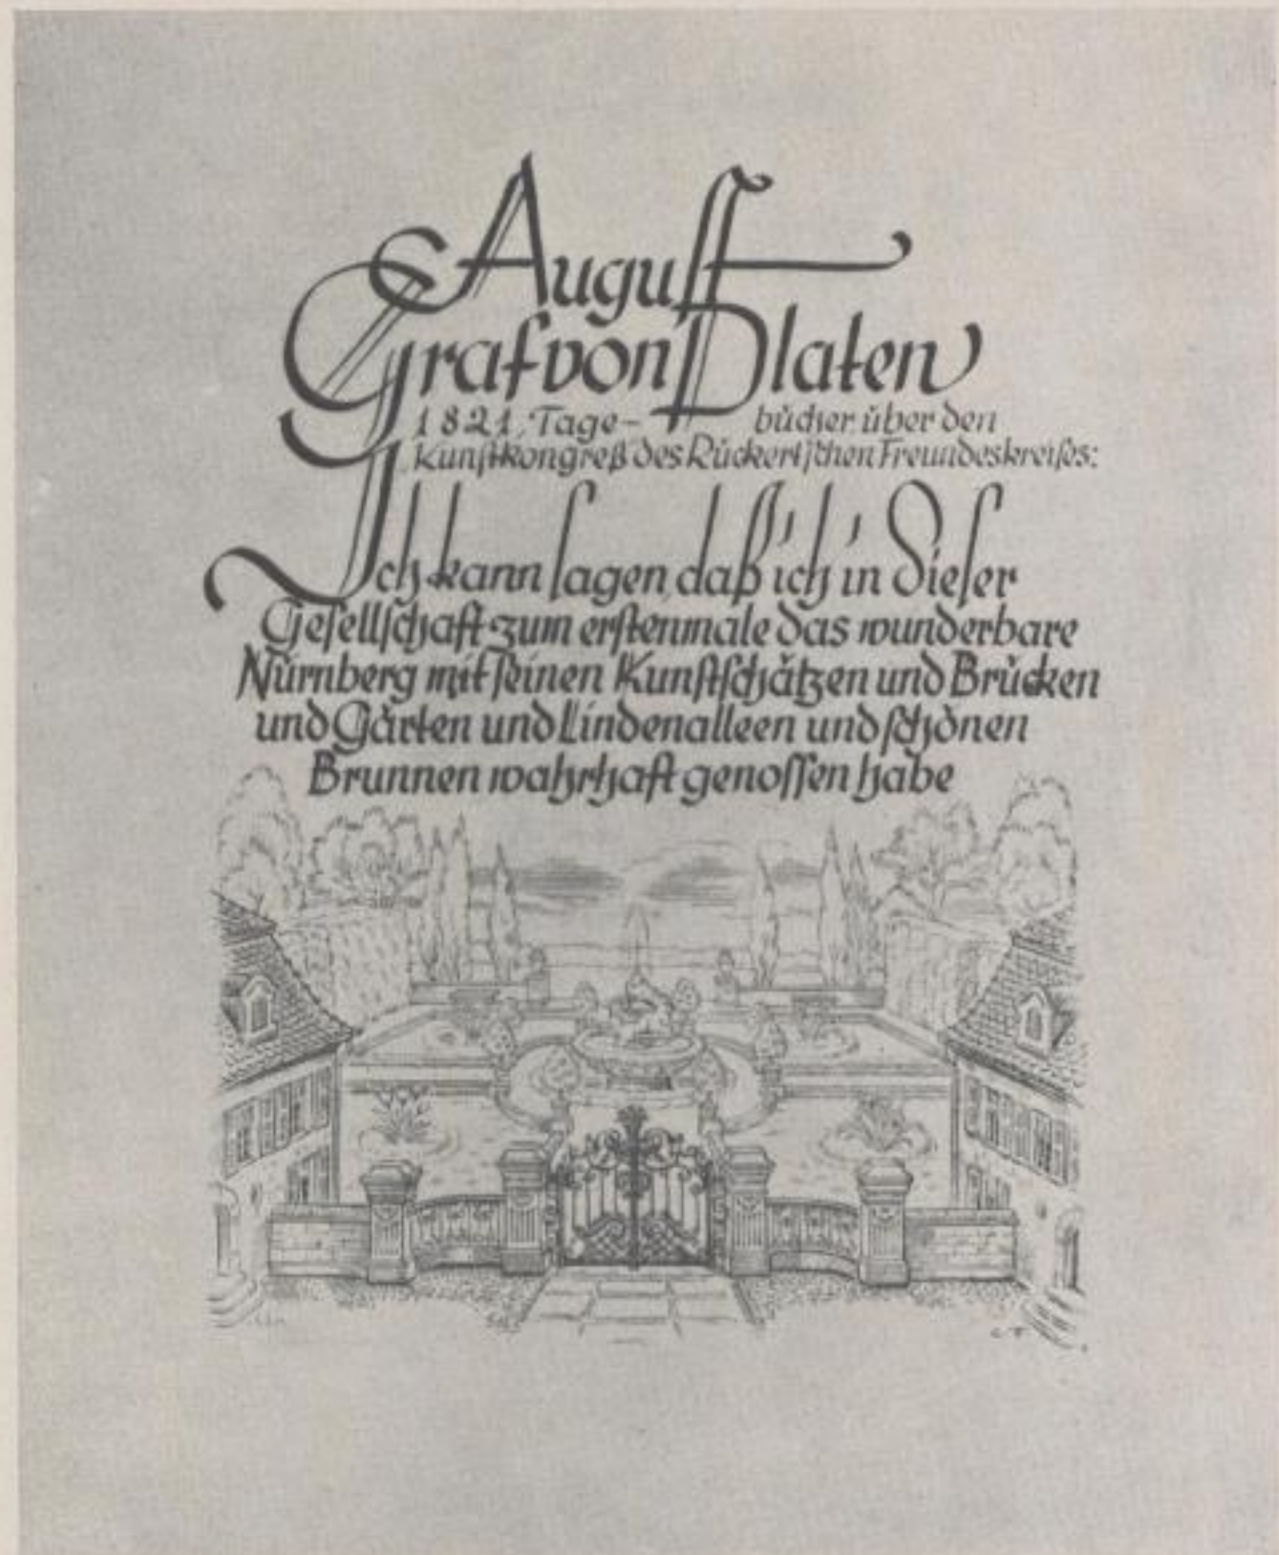 August
Graf von Platen
1821, Tage-bücher über den
Kunstkongreß des Rückert'schen Freundeskreises:
Ich kann sagen, daß ich in dieser
Gesellschaft zum erstenmale das wunderbare
Nürnberg mit seinen Kunstschätzen und Brücken
und Gärten und Lindenalleen und schönen
Brunnen wahrhaft genossen habe